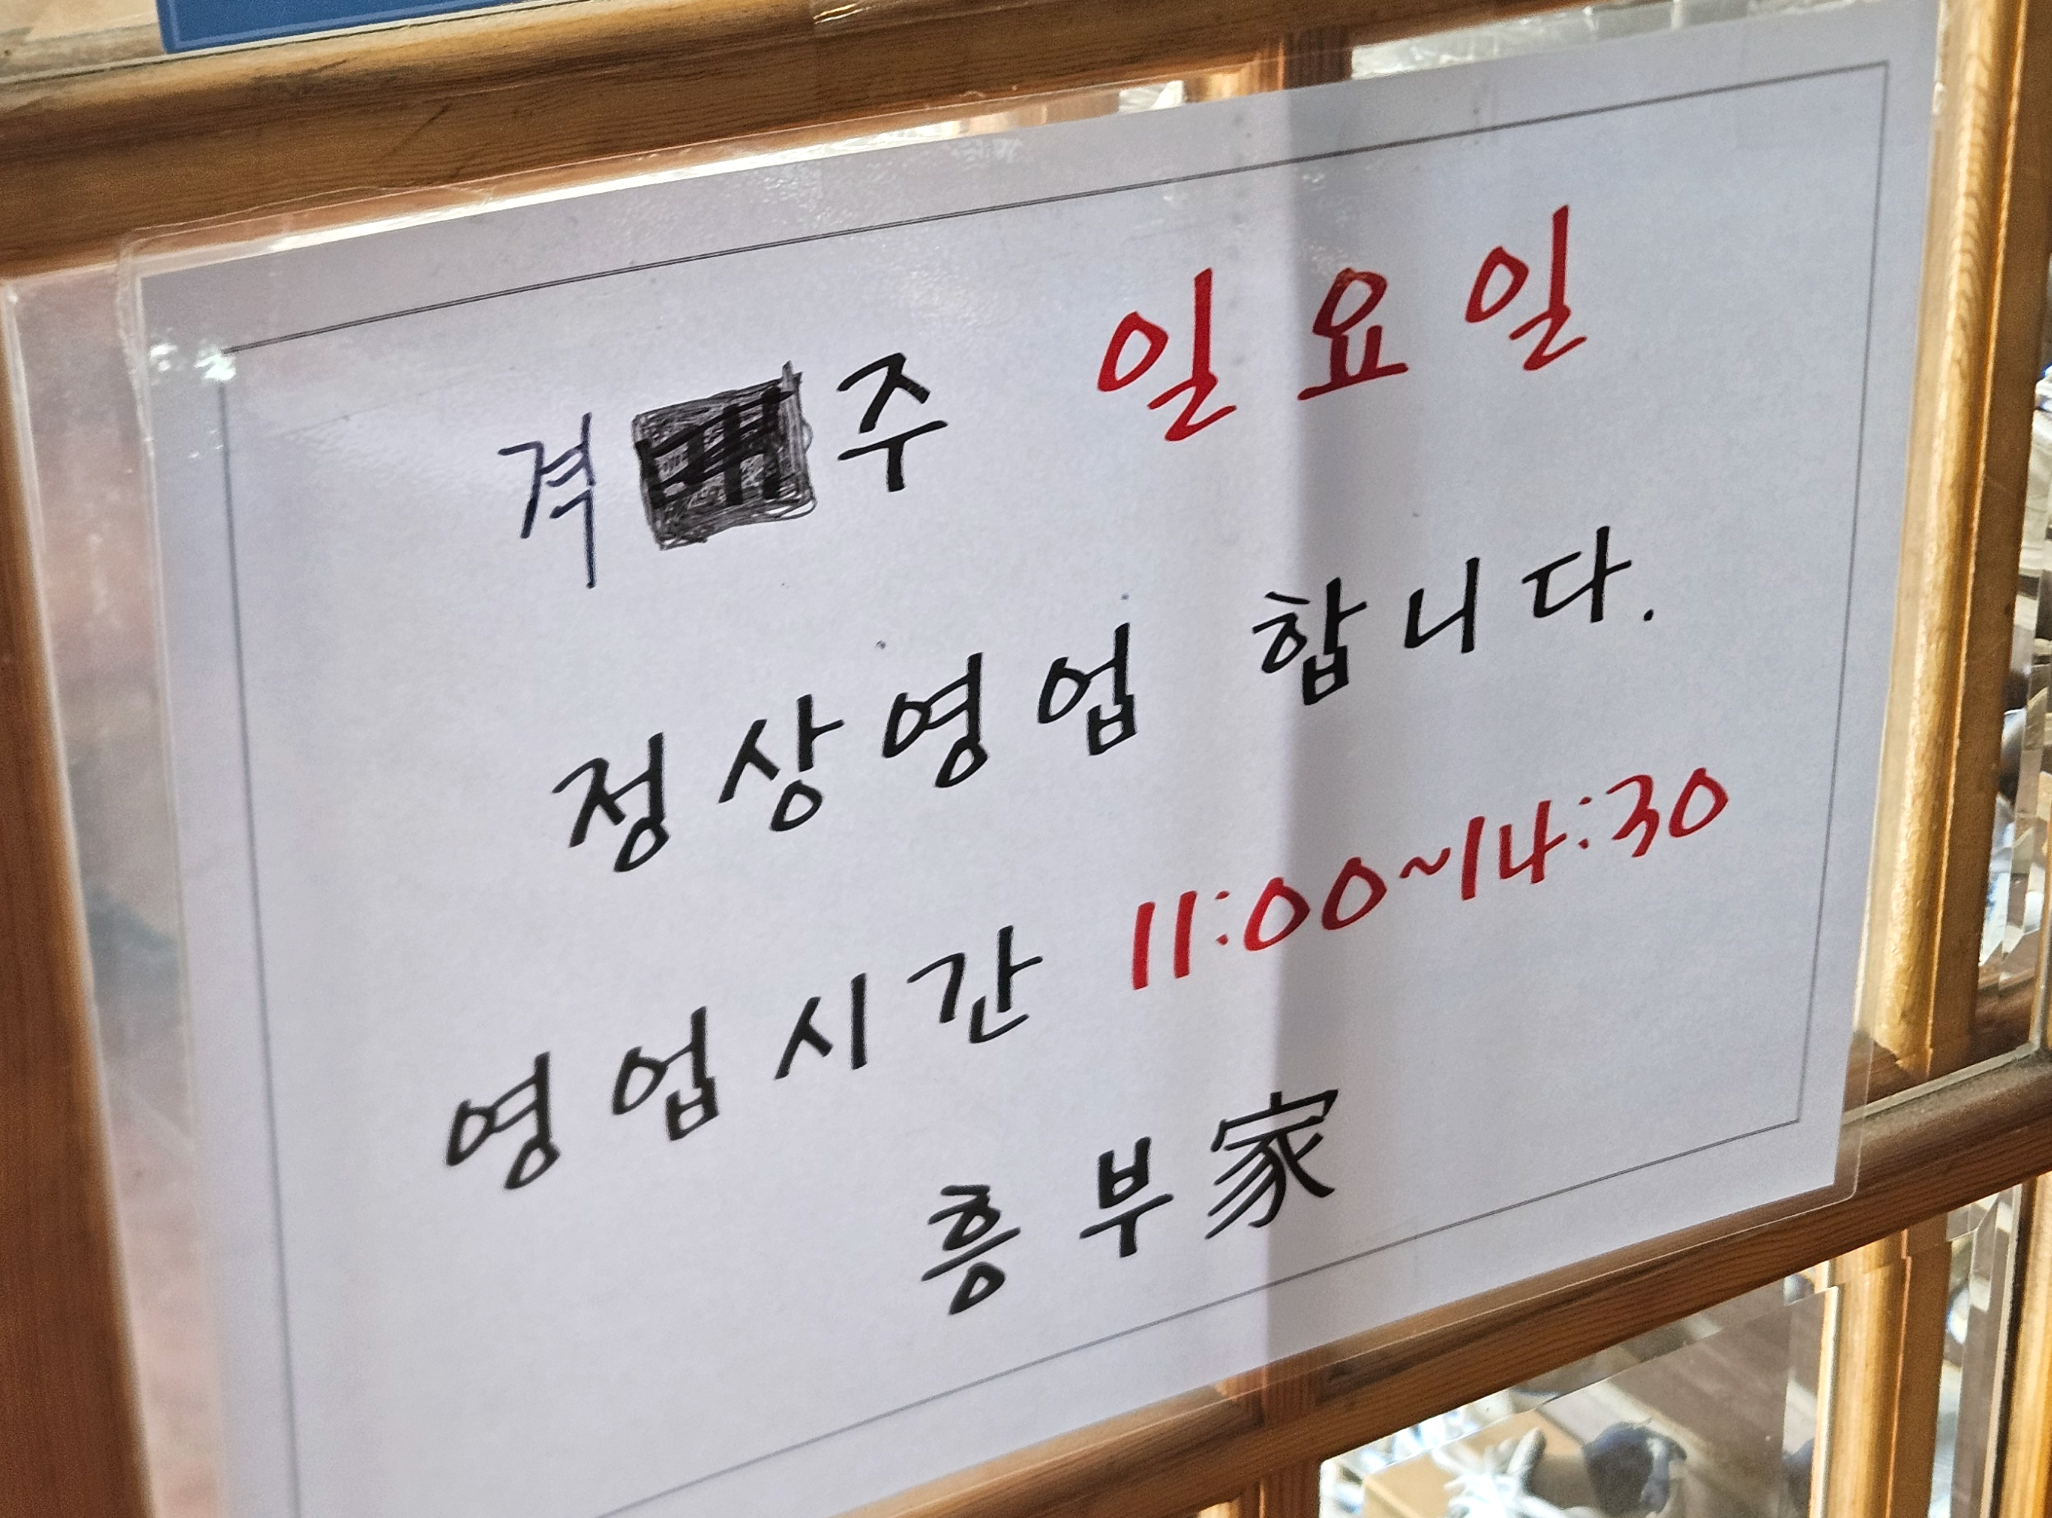 격주 일요일
정상영업 합니다.
영업시간 11:00~14:30
흥부家